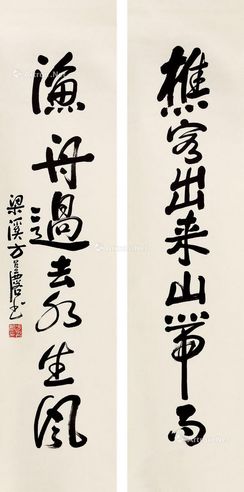 樵客出来山带雨
渔舟過去水生风
梁溪方召麐书